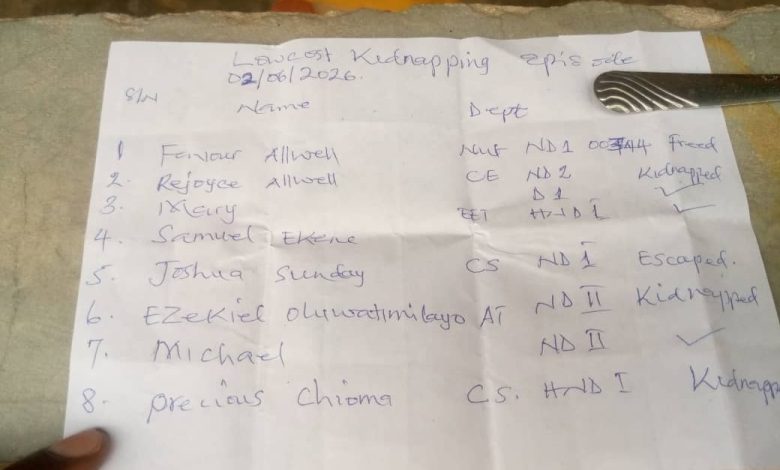 Lowcost Kidnapping Episode
02/06/2026.
S/N Name Dept
1 Favour Allwell Nut ND1 00344 Freed
2. Rejoyce Allwell CE ND 2 Kidnapped
3. Mary EET HND I ✓
4. Samuel Ekene
5. Joshua Sunday CS ND I Escaped.
6. Ezekiel Oluwatimilayo AT ND II Kidnapped
7. Michael ND II ✓
8. Precious Chioma C.S. HND I Kidnapp